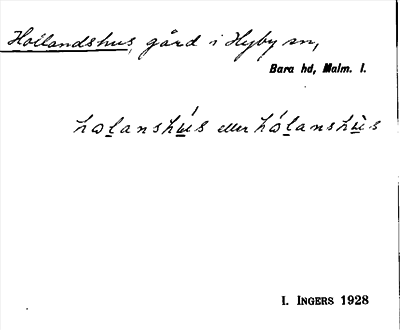 Hollandshus, gård i Hyby sn,
Bara hd, Malm. l.
hɷlanshús eller hólanshùs
I. INGERS 1928